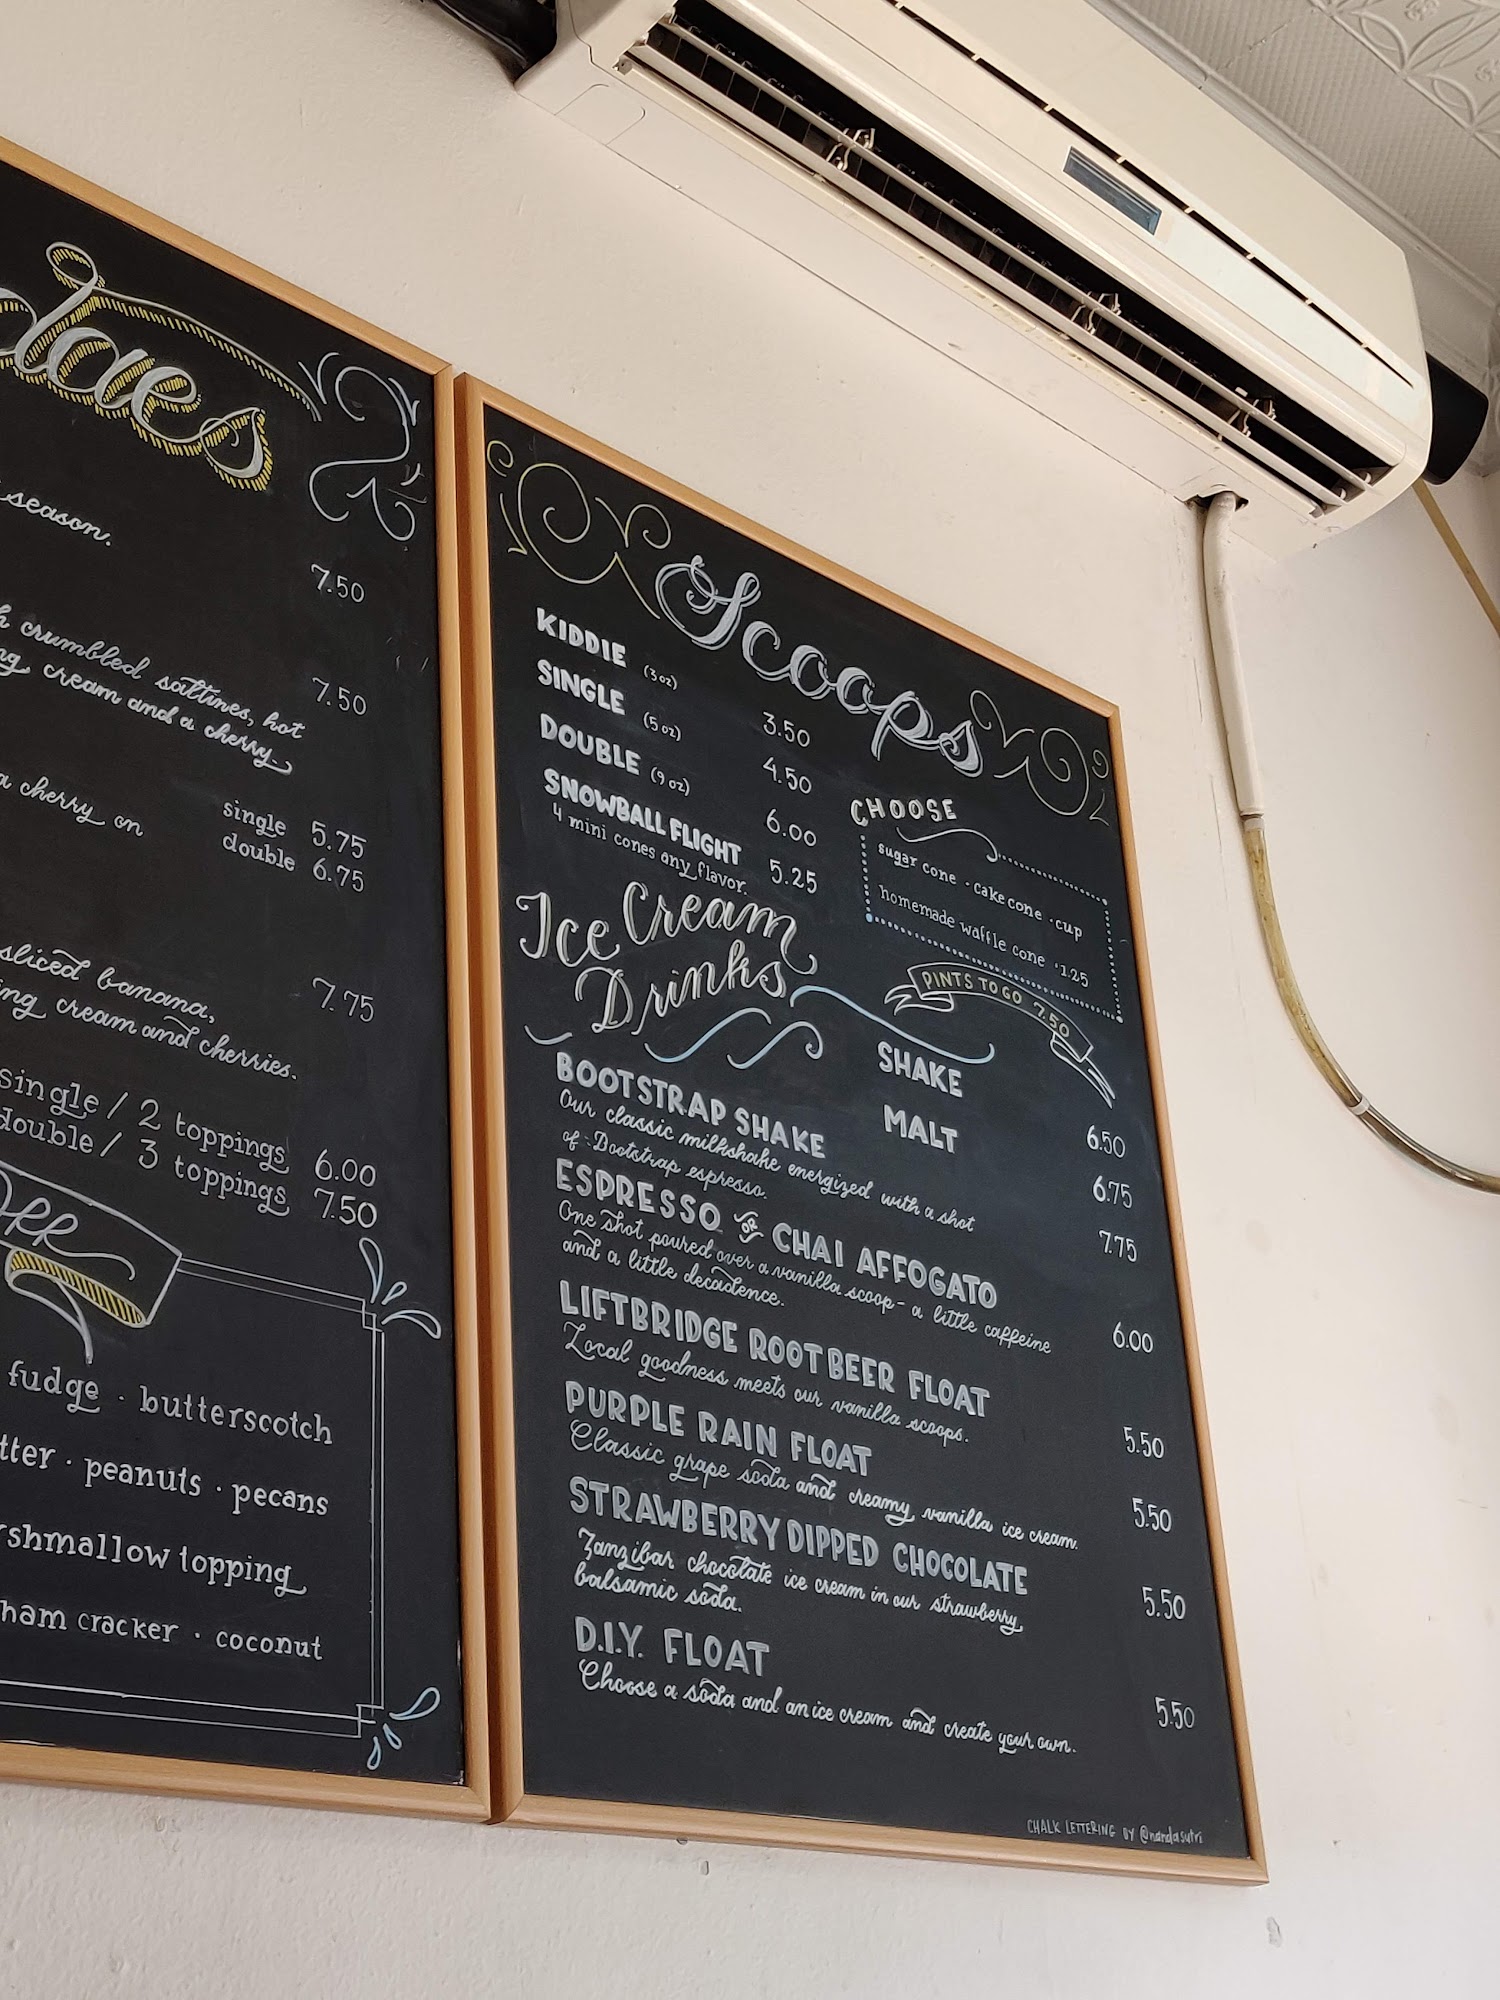 daes
season.
7.50
crumbled saltines, hot
cream and a cherry.
7.50
a cherry on
single 5.75
double 6.75
sliced banana,
cream and cherries.
7.75
single / 2 toppings 6.00
double / 3 toppings 7.50
fudge · butterscotch
peanuts · pecans
topping
cracker · coconut
Scoops
KIDDIE (3 oz) 3.50
SINGLE (5 oz) 4.50
DOUBLE (9 oz) 6.00
SNOWBALL FLIGHT 5.25
4 mini cones any flavor.
CHOOSE
sugar cone · cake cone · cup
homemade waffle cone · 1.25
PINTS TO GO 7.50
Ice Cream
Drinks
SHAKE 6.50
MALT 6.75
BOOTSTRAP SHAKE 7.75
Our classic milkshake energized with a shot
of Bootstrap espresso.
ESPRESSO OR CHAI AFFOGATO 6.00
One shot poured over a vanilla scoop - a little caffeine
and a little decadence.
LIFTBRIDGE ROOT BEER FLOAT 5.50
Local goodness meets our vanilla scoops.
PURPLE RAIN FLOAT 5.50
Classic grape soda and creamy vanilla ice cream.
STRAWBERRY DIPPED CHOCOLATE 5.50
Zanzibar chocolate ice cream in our strawberry
balsamic soda.
D.I.Y. FLOAT 5.50
Choose a soda and an ice cream and create your own.
CHALK LETTERING BY @nandasutri